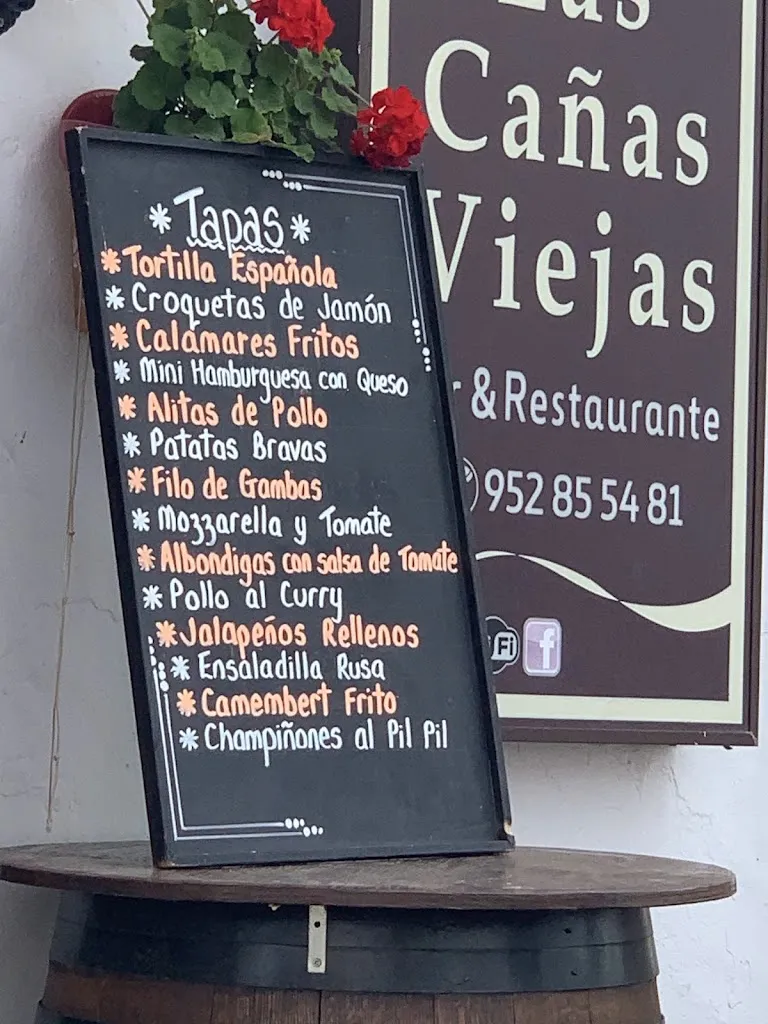 Tapas
Tortilla Española
Croquetas de Jamón
Calamares Fritos
Mini Hamburguesa con Queso
Alitas de Pollo
Patatas Bravas
Filo de Gambas
Mozzarella y Tomate
Albondigas con salsa de Tomate
Pollo al Curry
Jalapeños Rellenos
Ensaladilla Rusa
Camembert Frito
Champiñones al Pil Pil
Las
Cañas
Viejas
& Restaurante
952 85 54 81
Fi
f